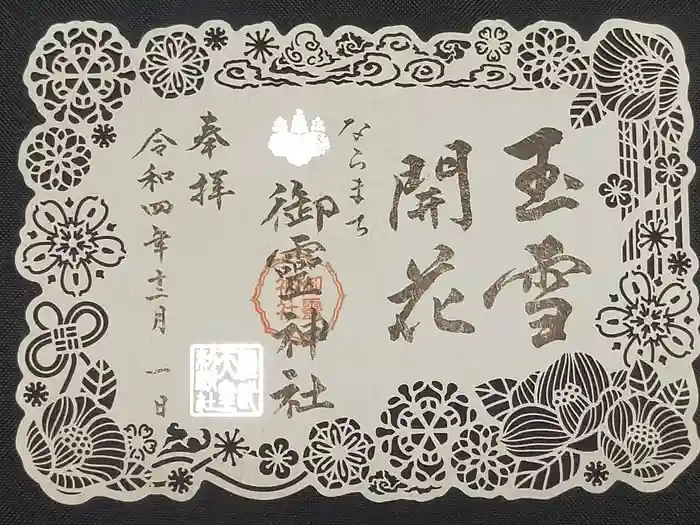 玉雪
開花
ならまち
御靈神社
奉拝
令和四年十二月一日